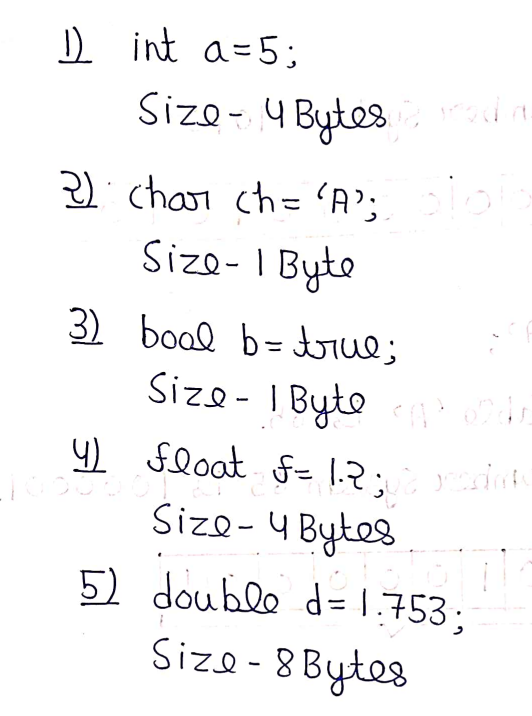 1) int a=5;
Size - 4 Bytes
2) char ch= 'A';
Size - 1 Byte
3) bool b= true;
Size - 1 Byte
4) float f= 1.2;
Size - 4 Bytes
5) double d= 1.753;
Size - 8 Bytes